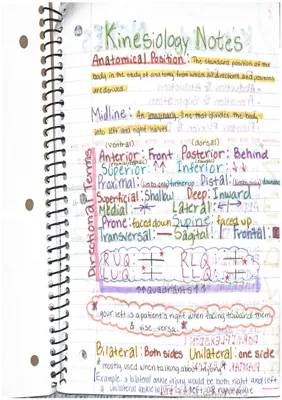 Kinesiology Notes
Anatomical Position: The standard position of the
body in the study of anatomy from which all directions and positions
are derived.
Midline: An imaginary line that divides the body
into left and right halves.
(ventral) (dorsal)
Anterior: Front Posterior: Behind
Superior: ↑ Inferior: ↓
Proximal: Distal:
Superficial: Shallow Deep: Inward
Medial Lateral:
Prone: faced down Supine: faced up
Transversal Sagital Frontal:
Directional Terms
RUQ RLQ
LUQ LLQ
↑↑ quadrants ↑↑
your left is a patient's right when facing toward them
& vise versa.
Bilateral: Both sides Unilateral: one side
* mostly used when talking about injury *
Example: a bilateral ankle injury would be both right and left
a unilateral ankle